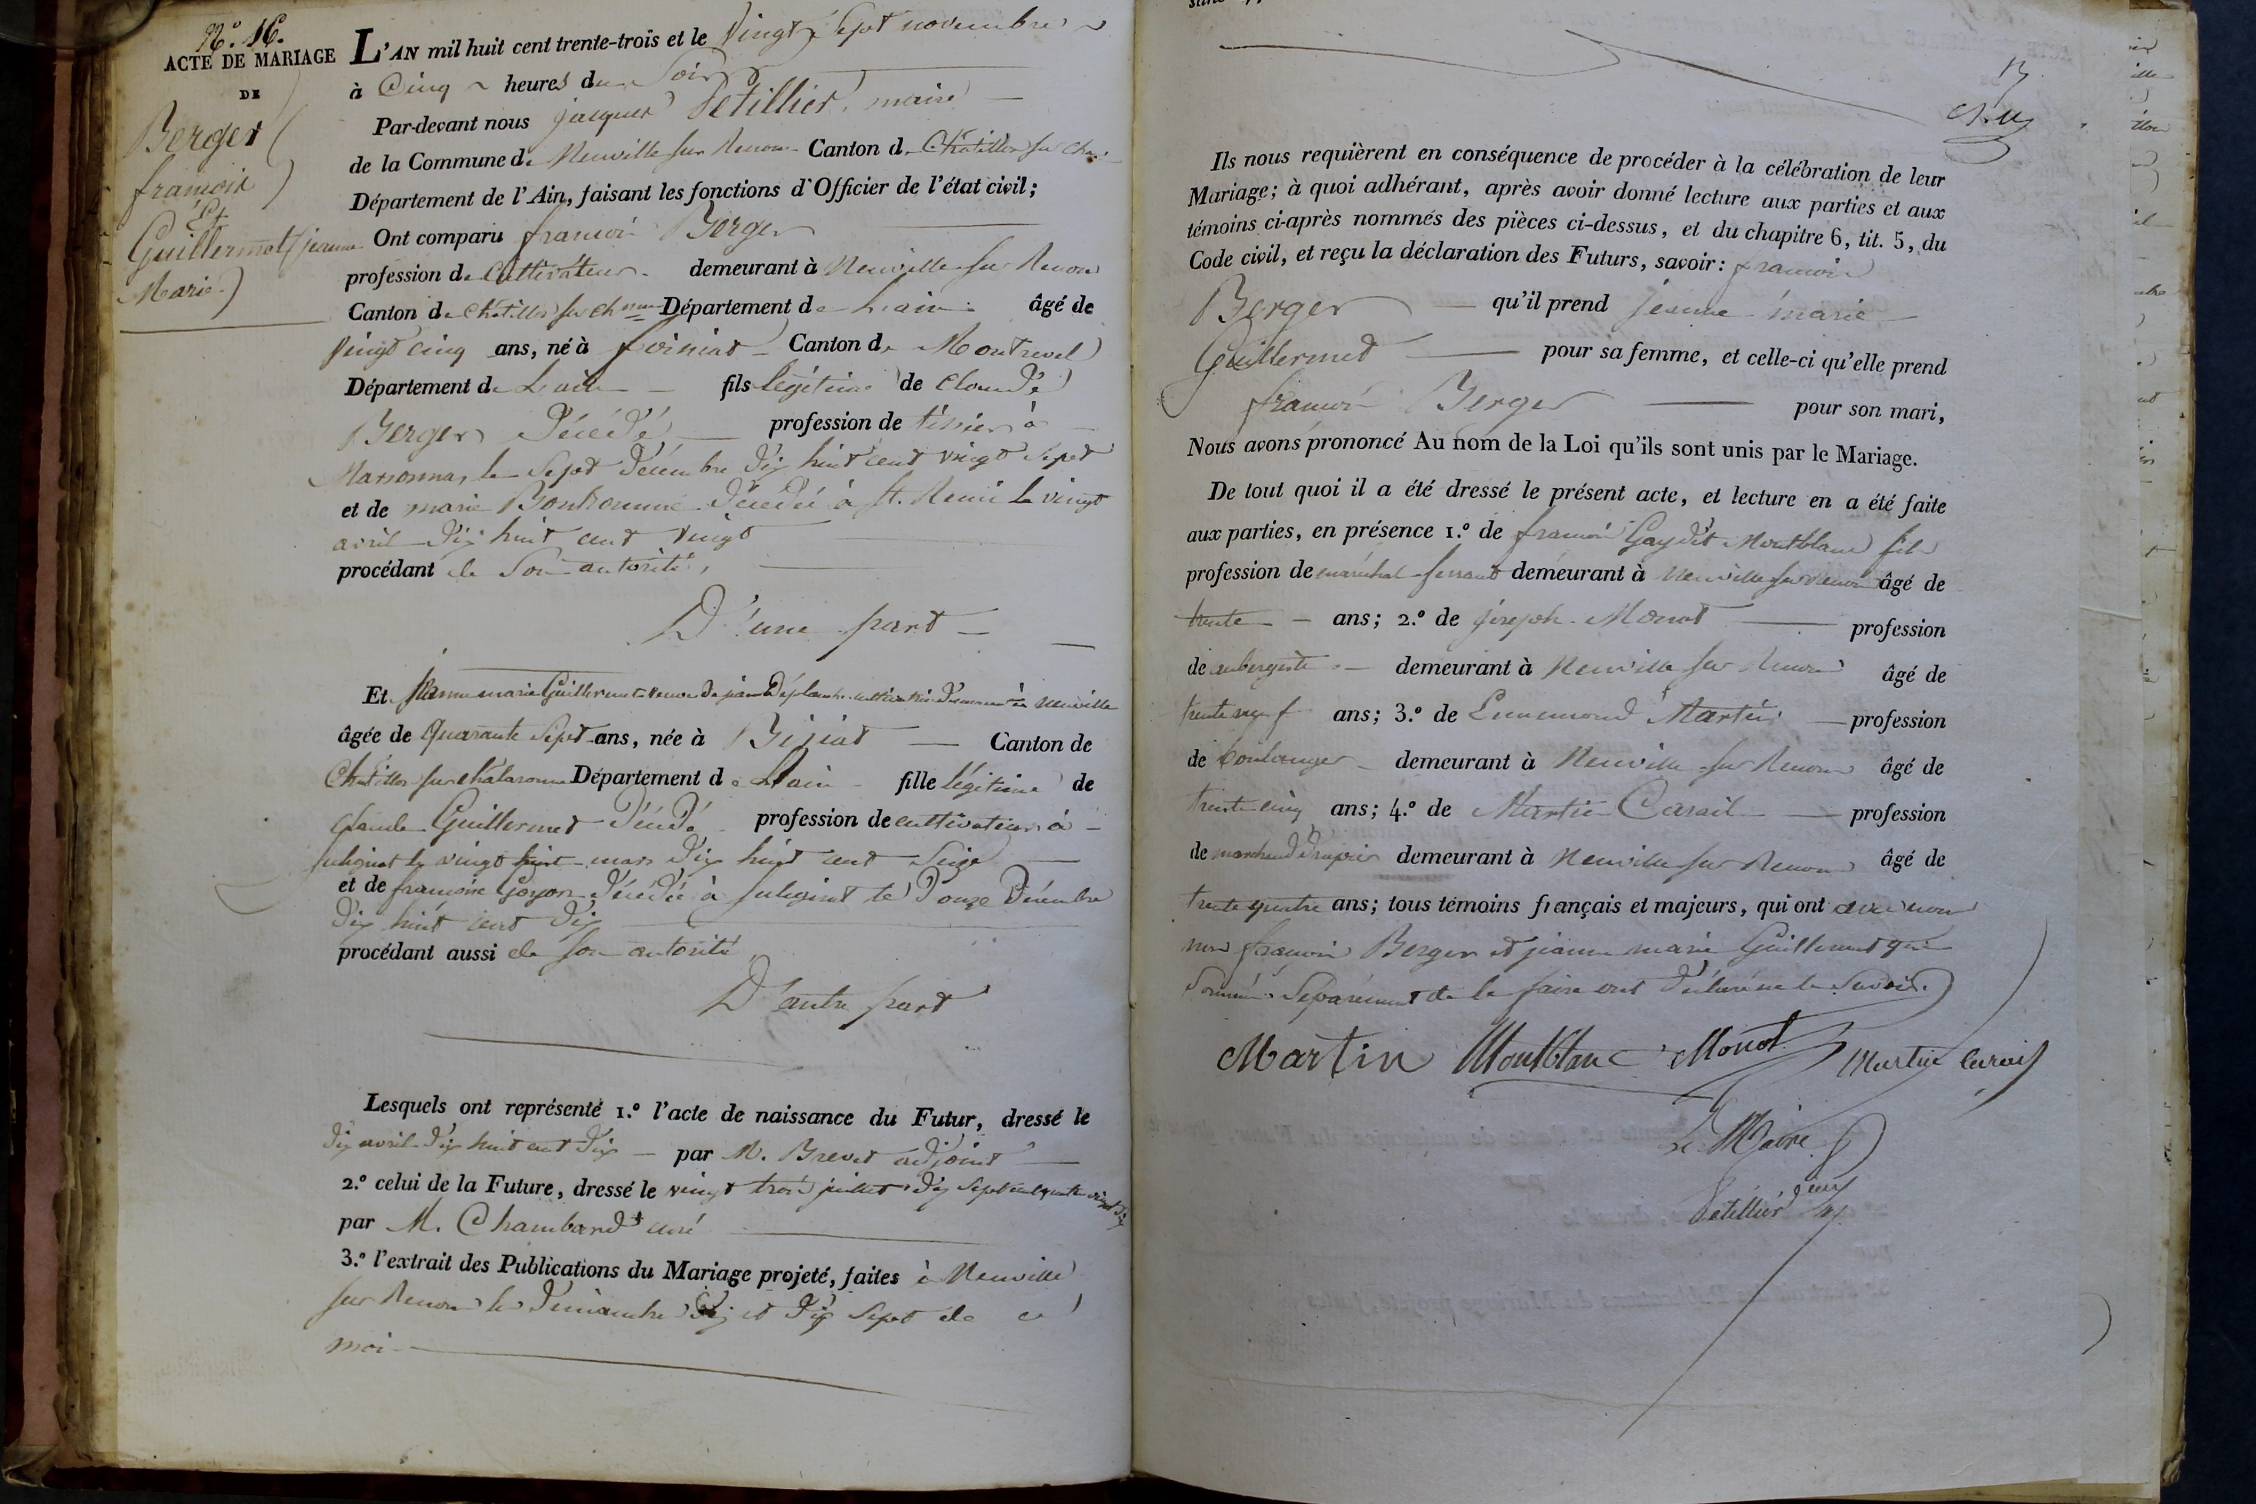 N.° 16.
ACTE DE MARIAGE
DE
Berger
françois
Et
Guillermet (jeanne
Marie)
L'AN mil huit cent trente-trois et le Vingt Sept novembre
à Cinq heures du Soir
Par-devant nous jacques Petillier, maire
de la Commune de Neuville sur Renon Canton de Chatillon sur Chne
Département de l'Ain, faisant les fonctions d'Officier de l'état civil;
Ont comparu françois Berger
profession de Cultivateur demeurant à Neuville sur Renon
Canton de Chatillon sur Chne Département de Lain âgé de
Vingt cinq ans, né à foissiat Canton de Montrevel
Département de Lain fils légitime de Claude
Berger Décédé profession de tissier à
Marsonnas le Sept Décembre Dix huit cent vingt Sept
et de marie Bonhomme Décédée à St. Remi le vingt
avril Dix huit cent vingt
procédant de Son autorité,
D'une part
Et Jeanne marie Guillermet veuve de Déplanche cultivatrice Demeurant à Neuville
âgée de Quarante Sept ans, née à Biziat Canton de
Chatillon sur Chalaronne Département de Lain fille légitime de
Claude Guillermet Décédé profession de cultivateur à
Sulignat le vingt huit mars Dix huit cent Seize
et de françoise Goyon Décédée à Sulignat le Douze Décembre
Dix huit cent Dix
procédant aussi de son autorité
D'autre part
Lesquels ont représenté 1.° l'acte de naissance du Futur, dressé le
Dix avril Dix huit cent Dix par M. Brevet adjoint
2.° celui de la Future, dressé le vingt trois juillet Dix Sept cent quatre vingt Dix
par M. Chambard curé
3.° l'extrait des Publications du Mariage projeté, faites à Neuville
sur Renon les Dimanches Dix et Dix Sept de ce
moi
Ils nous requièrent en conséquence de procéder à la célébration de leur
Mariage; à quoi adhérant, après avoir donné lecture aux parties et aux
témoins ci-après nommés des pièces ci-dessus, et du chapitre 6, tit. 5, du
Code civil, et reçu la déclaration des Futurs, savoir: françois
Berger qu'il prend jeanne marie
Guillermet pour sa femme, et celle-ci qu'elle prend
françois Berger pour son mari,
Nous avons prononcé Au nom de la Loi qu'ils sont unis par le Mariage.
De tout quoi il a été dressé le présent acte, et lecture en a été faite
aux parties, en présence 1.° de françois Gay dit Montblanc fils
profession de maréchal ferrant demeurant à Neuville sur Renon âgé de
trente ans; 2.° de joseph Monot profession
de aubergiste demeurant à Neuville sur Renon âgé de
trente neuf ans; 3.° de Ennemond Martin profession
de boulanger demeurant à Neuville sur Renon âgé de
trente cinq ans; 4.° de Martin Carail profession
de marchand drapier demeurant à Neuville sur Renon âgé de
trente quatre ans; tous témoins français et majeurs, qui ont avec nous
non françois Berger et jeanne marie Guillermet que
Sommés Séparément de le faire ont Déclaré ne le Savoir.
Martin Montblanc Monot Martin Carail
Le Maire
Petillier